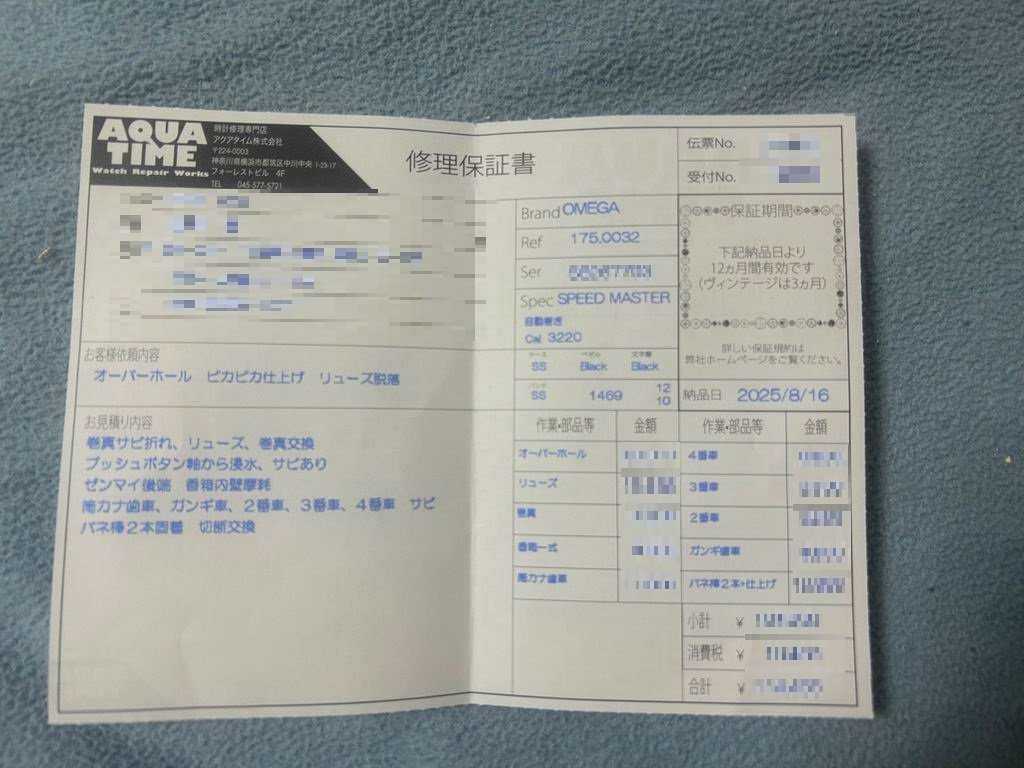 AQUA
TIME
Watch Repair Works
時計修理専門店
アクアタイム株式会社
〒224-0003
神奈川県横浜市都筑区中川中央 1-23-17
フォーレストビル 4F
TEL 045-577-5721
修理保証書
伝票No.
受付No.
Brand OMEGA
Ref 175.0032
Ser
Spec SPEED MASTER
自動巻き
Cal. 3220
ケース ベゼル 文字盤
SS Black Black
バンド
SS 1469 12
10
保証期間
下記納品日より
12ヵ月間有効です
(ヴィンテージは3ヵ月)
詳しい保証規約は
弊社ホームページをご覧ください。
納品日 2025/8/16
お客様依頼内容
オーバーホール ピカピカ仕上げ リューズ脱落
お見積り内容
巻真サビ折れ、リューズ、巻真交換
プッシュボタン軸から浸水、サビあり
ゼンマイ後端 香箱内壁摩耗
筒カナ歯車、ガンギ車、2番車、3番車、4番車 サビ
バネ棒2本固着 切断交換
作業・部品等 金額 作業・部品等 金額
オーバーホール 4番車
リューズ 3番車
巻真 2番車
香箱一式 ガンギ歯車
筒カナ歯車 バネ棒2本+仕上げ
小計 ¥
消費税 ¥
合計 ¥